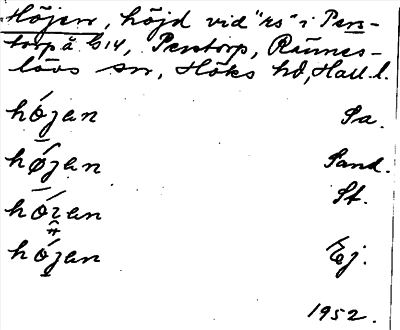 Höjen, höjd vid "rs" i Pers-
torp å G14, Perstorp, Ränes-
lövs sn, Höks hd, Hall. l.
hójan Sa.
hǿjan Sand.
hóran St.
hójan Ej.
1952.